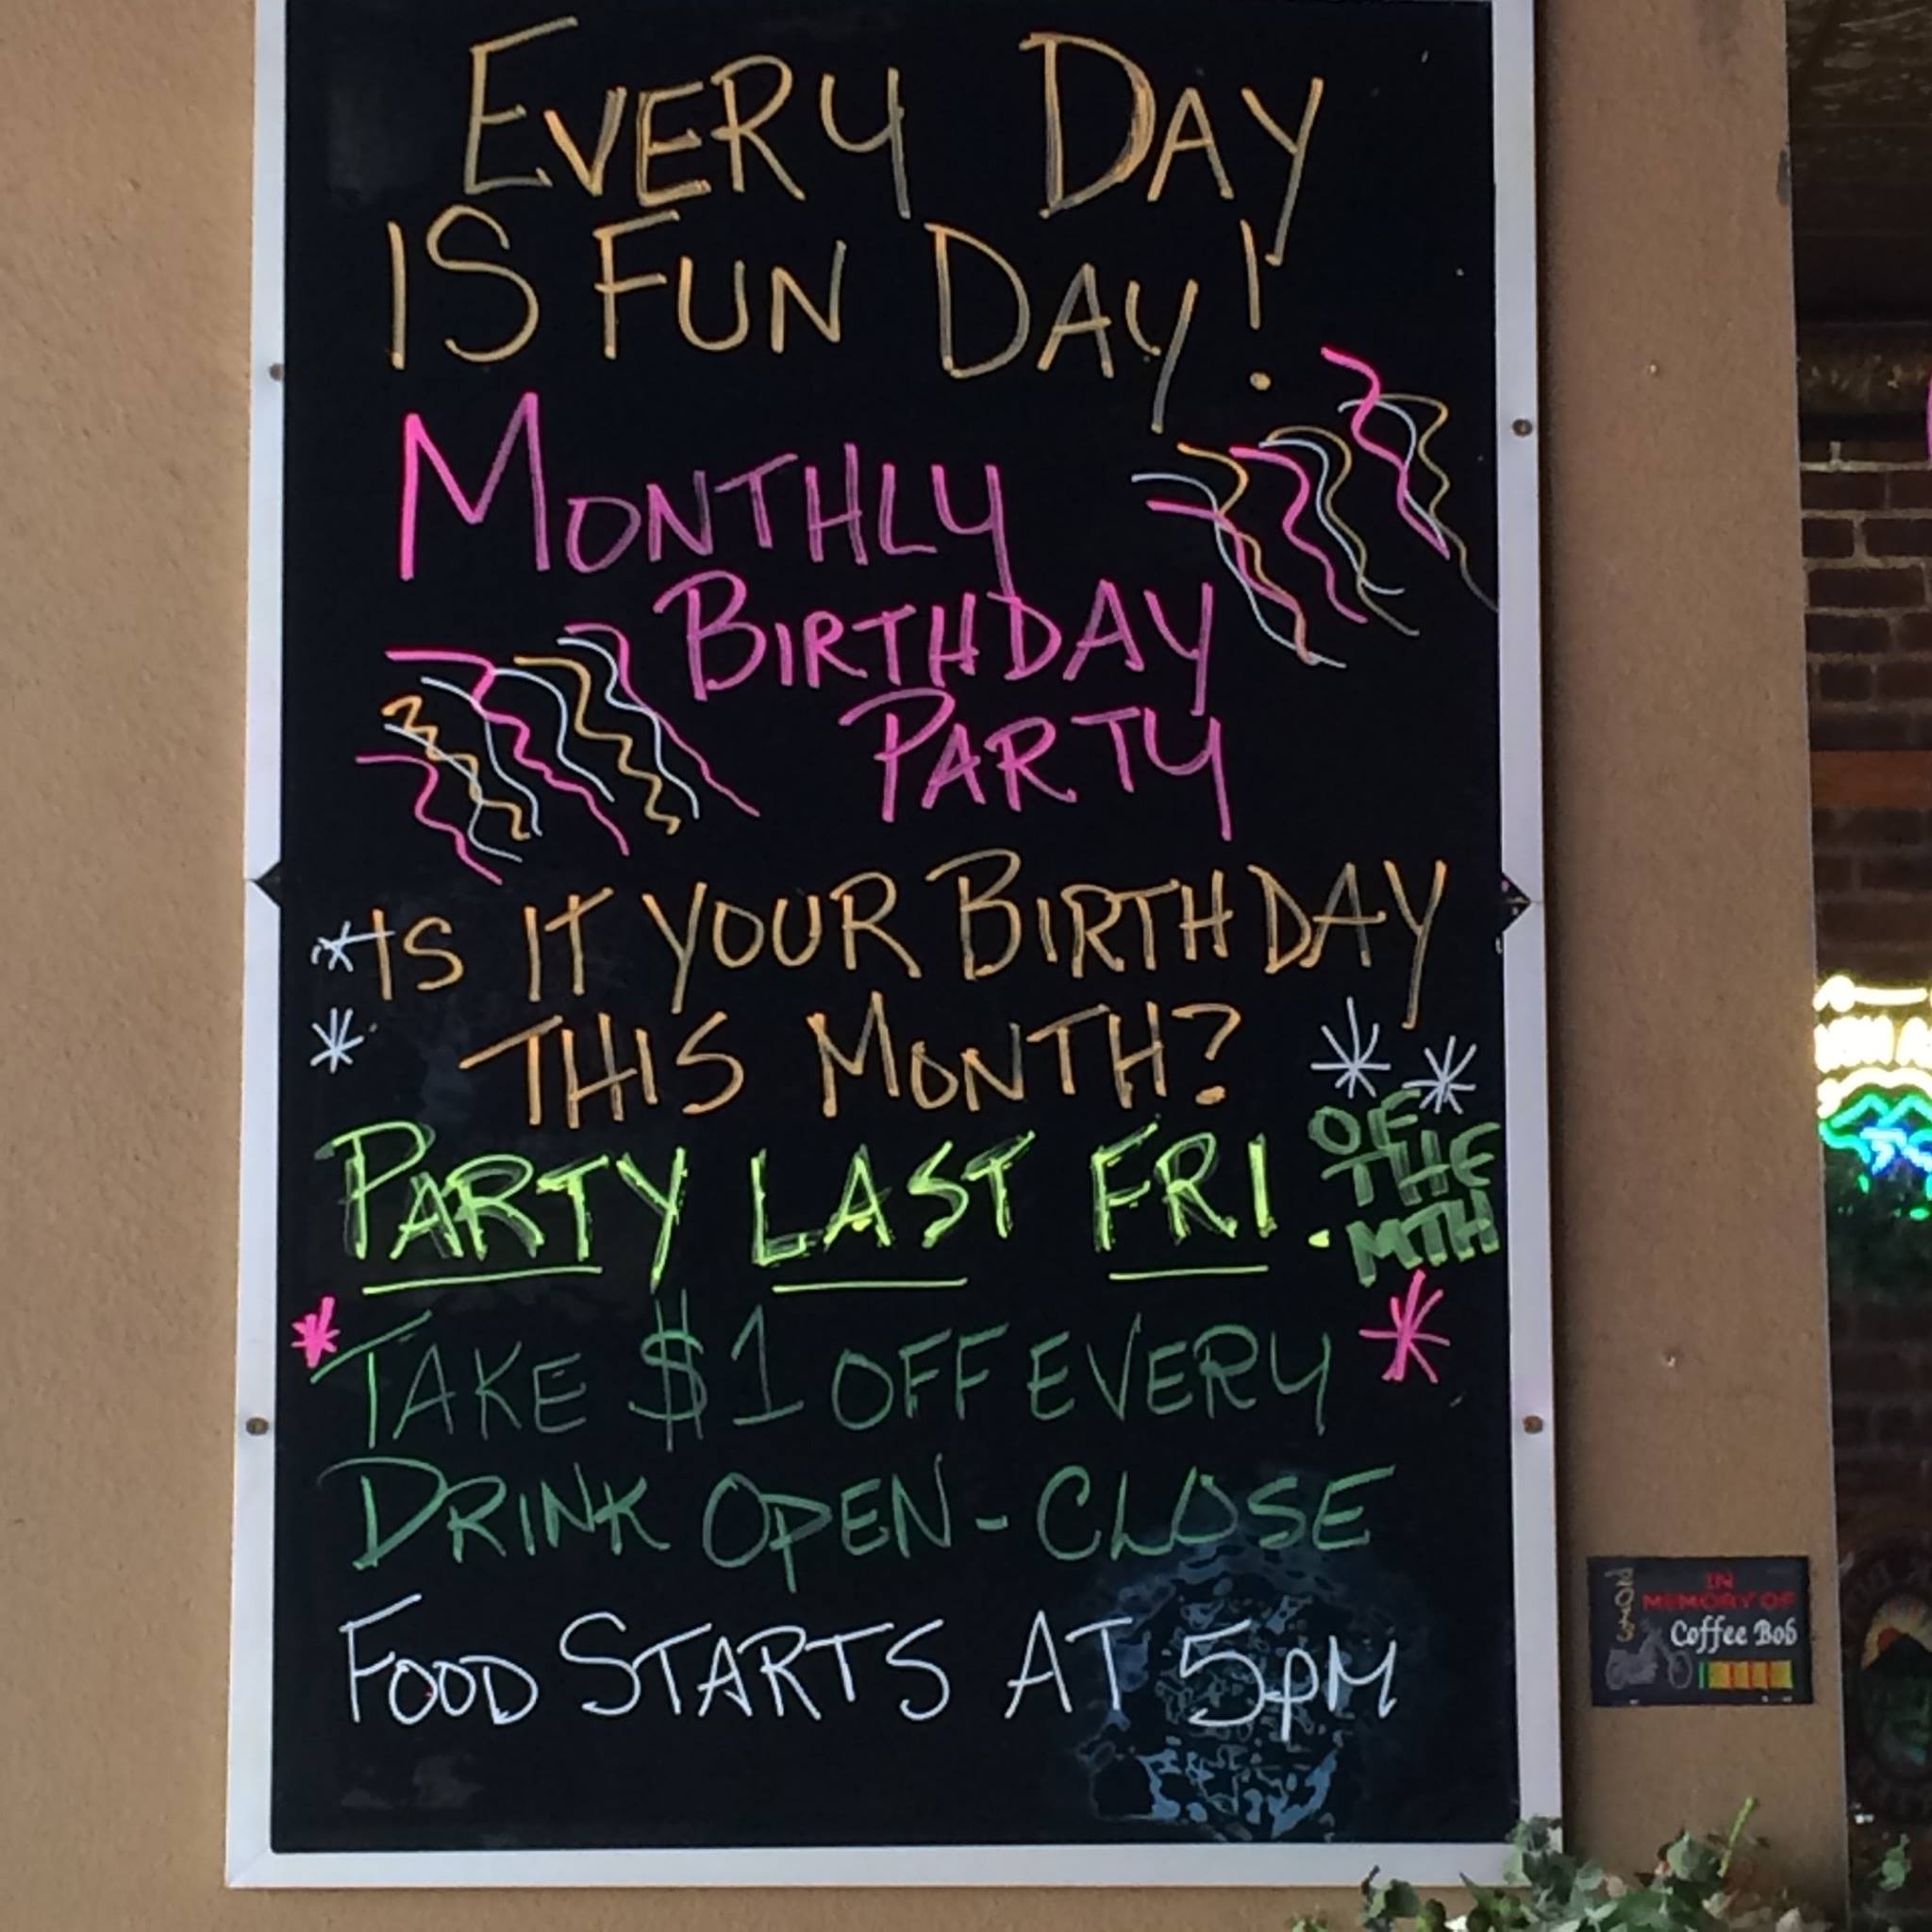 EVERY DAY
IS FUN DAY!
MONTHLY
BIRTHDAY
PARTY
*IS IT YOUR BIRTHDAY
* THIS MONTH? * *
PARTY LAST FRI.
OF
THE
MTH
*TAKE $1 OFF EVERY *
DRINK OPEN-CLOSE
FOOD STARTS AT 5PM
IN
MEMORY OF
Coffee Bob